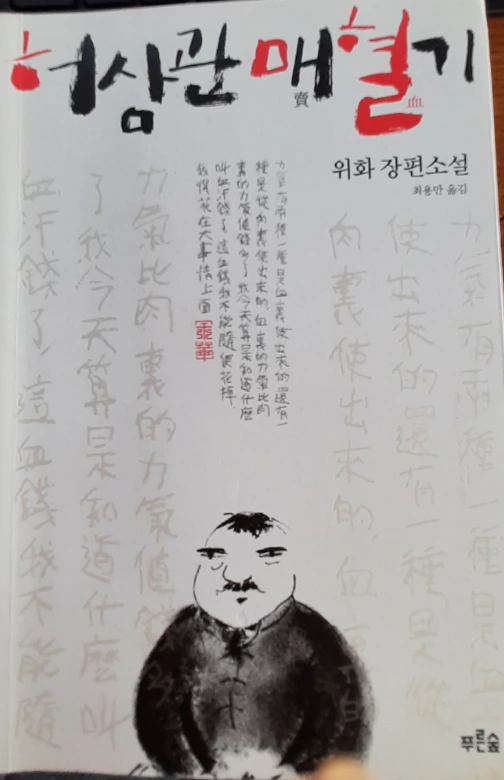 허삼관 매혈기
賣 血
위화 장편소설
최용만 옮김
力氣有兩種 一種是血裏使出來的 還有一
種是從肉裏使出來的, 血裏的力氣比肉
裏的力氣值錢多了 我今天算是知道什麼
叫血汗錢了 這血錢我不能隨便花掉
我得花在大事情上面
余華
力氣有兩種 一種是血
使出來的 還有一種是從
肉裏使出來的, 血裏的
力氣比肉裏的力氣值錢
了 我今天算是知道什麼叫
血汗錢了 這血錢我不能隨
푸른숲